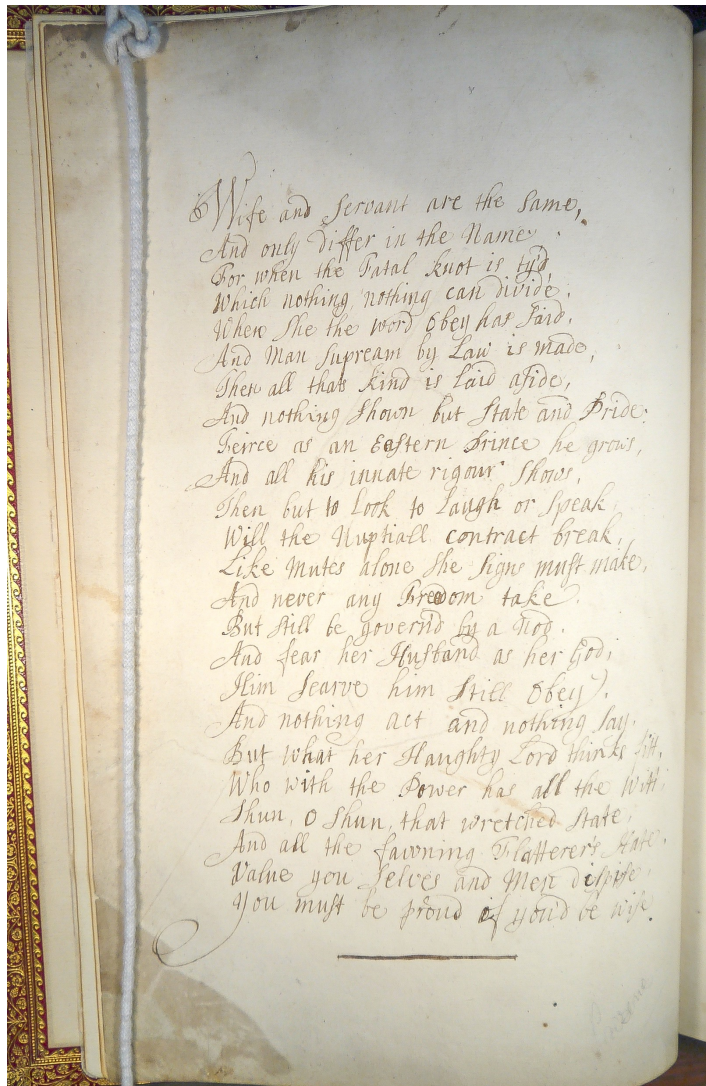 Wife and Servant are the Same,
And only differ in the Name
For when the Fatal knot is ty'd
Which nothing, nothing can divide.
When She the word Obey has Said.
And Man Supream by Law is made,
Then all thats kind is Laid aside,
And nothing Shown but State and Pride:
Feirce as an Eastern Prince he grows,
And all his innate rigour Shows,
Then but to Look to Laugh or Speak
Will the Nuptiall contract break,
Like Mutes alone She Signs must make,
And never any Freedom take
But Still be govern'd by a Nod.
And fear her Husband as her God;
Him Searve him Still Obey
And nothing act and nothing Say.
But what her Haughty Lord thinks fitt,
Who with the Power has all the Witt
Shun, O Shun, that wretched State,
And all the fawning Flatterers Hate,
Value you Selves and Men dispise
You must be proud if you'd be wise.